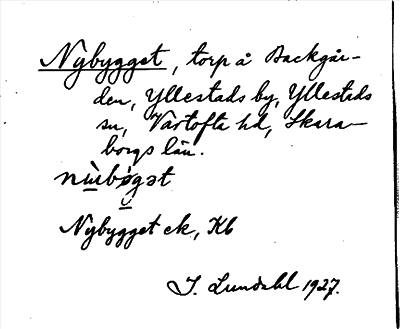 Nybygget, torp å Backgår-
den, Yllestads by, Yllestads
sn, Vartofta hd, Skara-
borgs län.
nùbøgət
Nybygget ek, Kb
I. Lundahl 1927.